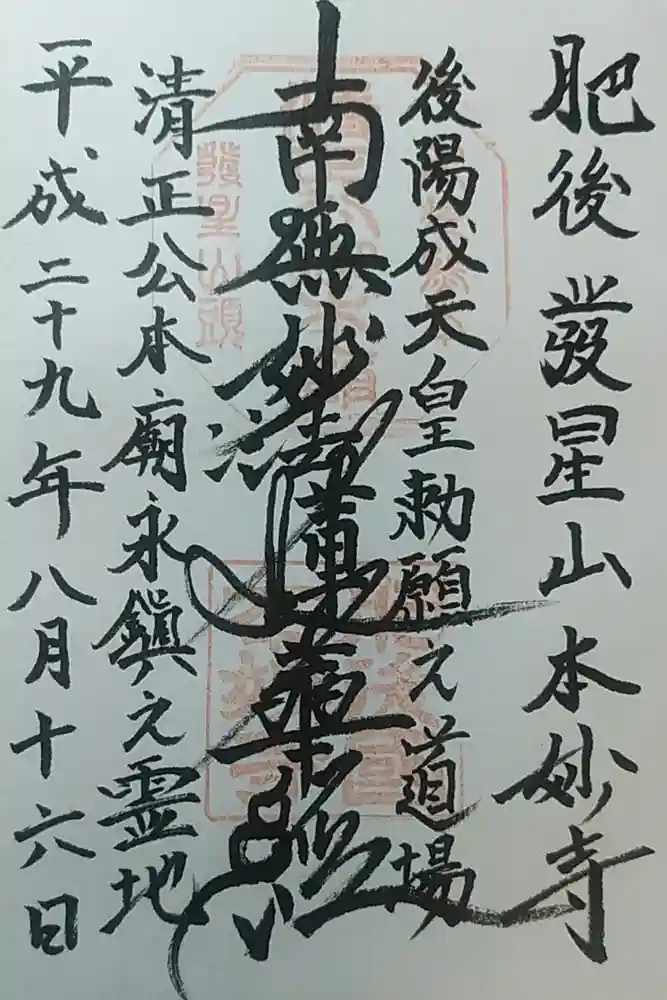 肥後 發星山 本妙寺
後陽成天皇勅願之道場
南無妙法蓮華経
清正公本廟永鎮之霊地
平成二十九年八月十六日
發星山頭